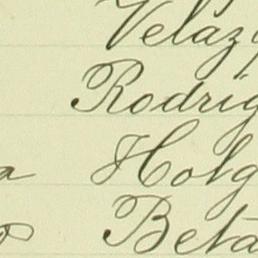 Veláz
Rodríg
a Holg
Beta